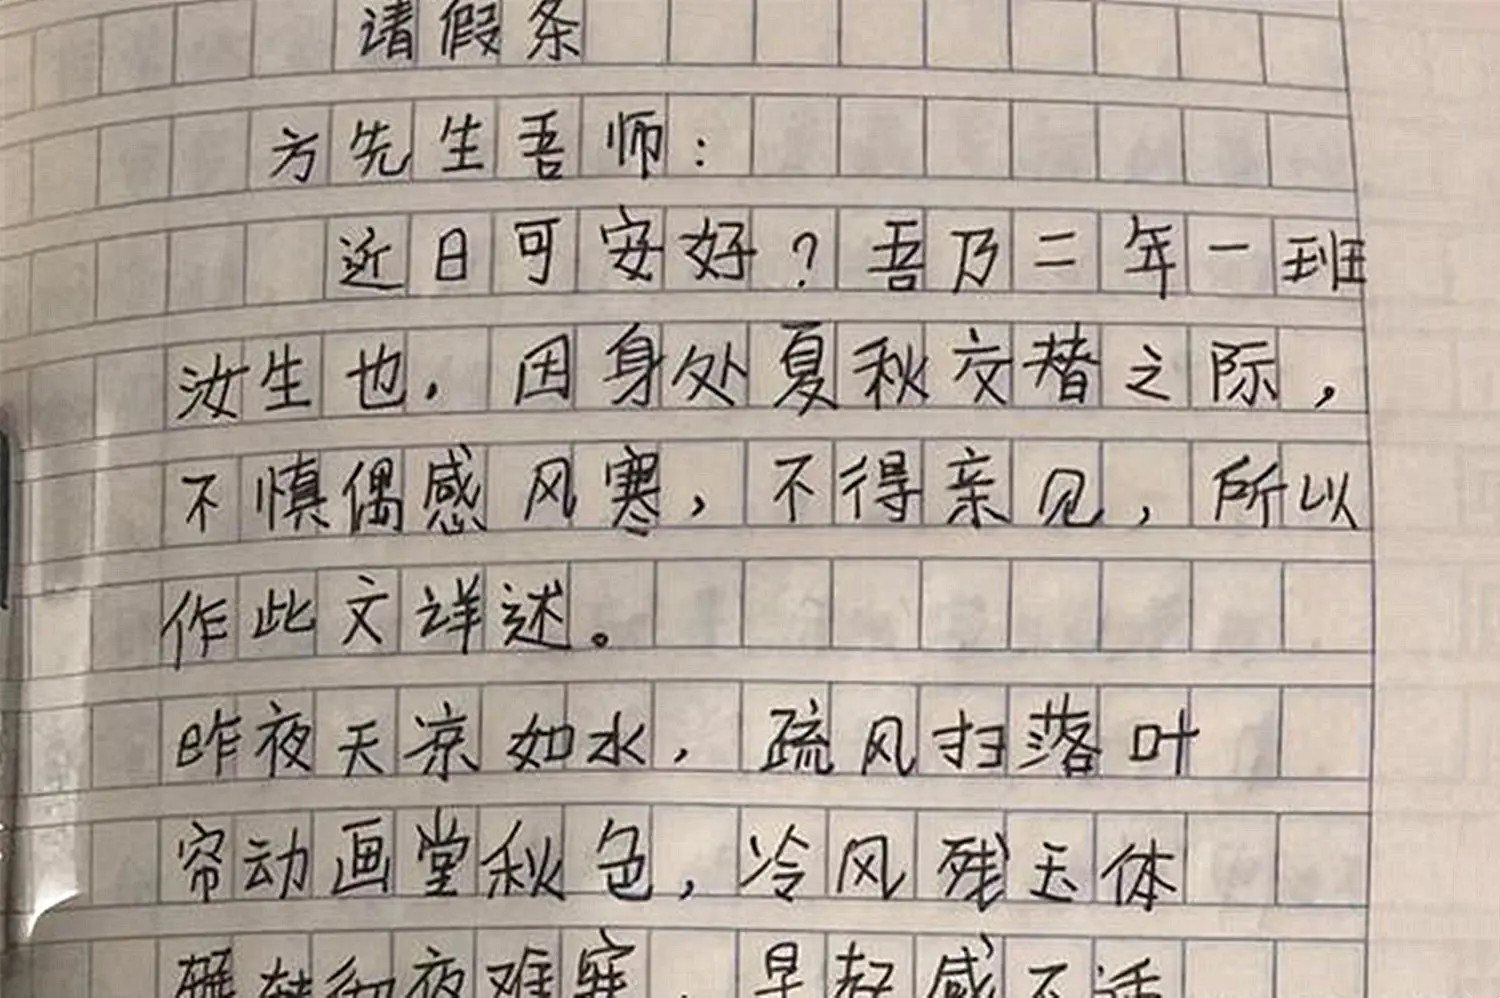 请假条
方先生吾师：
近日可安好？吾乃二年一班
汝生也，因身处夏秋交替之际，
不慎偶感风寒，不得亲见，所以
作此文详述。
昨夜天凉如水，疏风扫落叶
帘动画堂秋色，冷风残玉体
辗转彻夜难寐，早起感不适